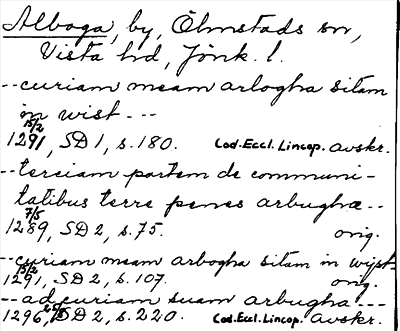 Alboga, by, Ölmstads sn,
Vista hd, Jönk. l.
--curiam meam arlogha sitam
in wist ---
15/2 1291, SD 1, s. 180. Cod. Eccl. Lincop. avskr.
--terciam partem de communi-
tatibus terre penes arbughæ--
7/5 1289, SD 2, s. 75. orig.
--curiam meam arbogha sitam in wijst-
15/2 1291, SD 2, s. 107. orig.
--ad curiam suam arbugha ---
1296, SD 2, s. 220. Cod. Eccl. Lincop. avskr.